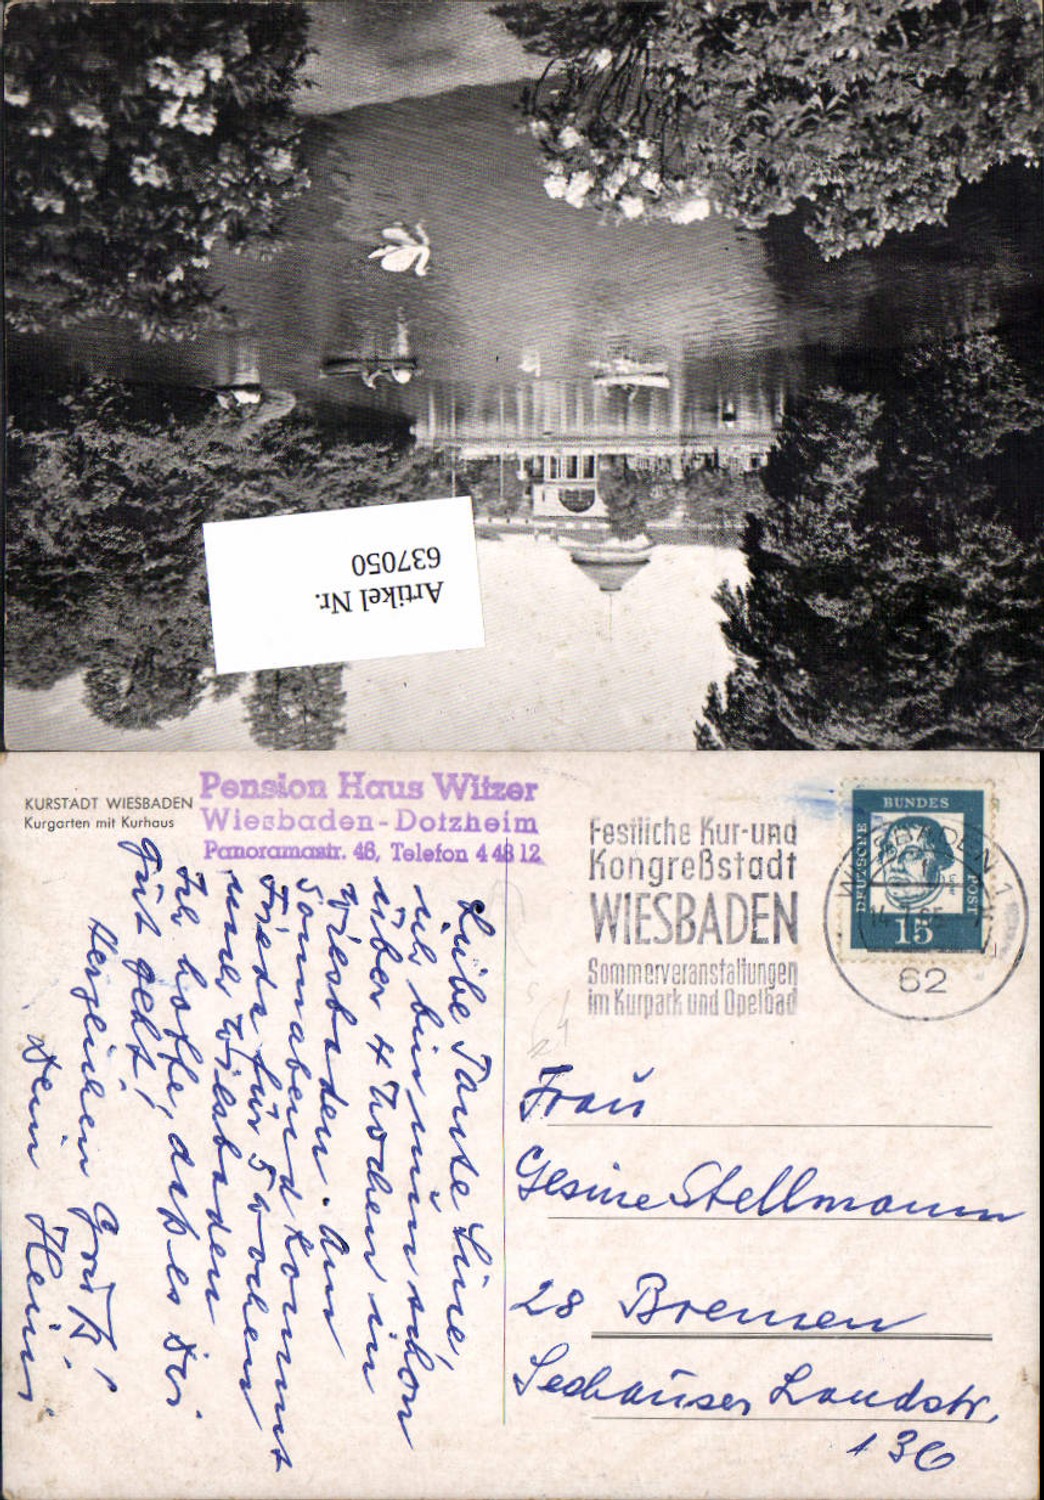 Artikel Nr.
637050
KURSTADT WIESBADEN
Kurgarten mit Kurhaus
Pension Haus Witzer
Wiesbaden-Dotzheim
Panoramastr. 46, Telefon 4 48 12
Festliche Kur-und
Kongreßstadt
WIESBADEN
Sommerveranstaltungen
im Kurpark und Opelbad
WIESBADEN 1
62
DEUTSCHE
BUNDES
POST
15
Liebe Tante Sine,
ich bin nun schon
über 4 Wochen in
Wiesbaden. Am
Sonnabend kommt
Frieda für 5 Wochen
nach Wiesbaden
Ich hoffe, daß es Dir
gut geht!
Herzlichen Gruß!
Dein Heini
Frau
Gesine Stellmann
28 Bremen
Seehauser Landstr.
136